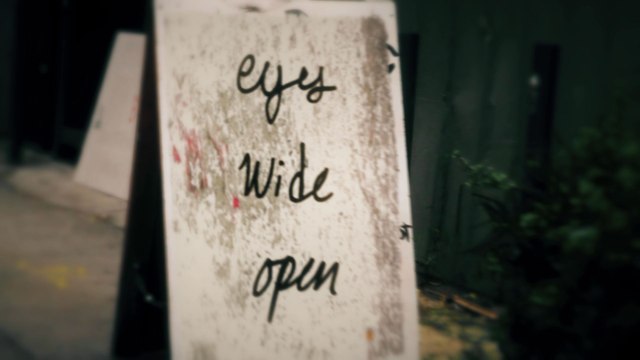 eyes
Wide
open